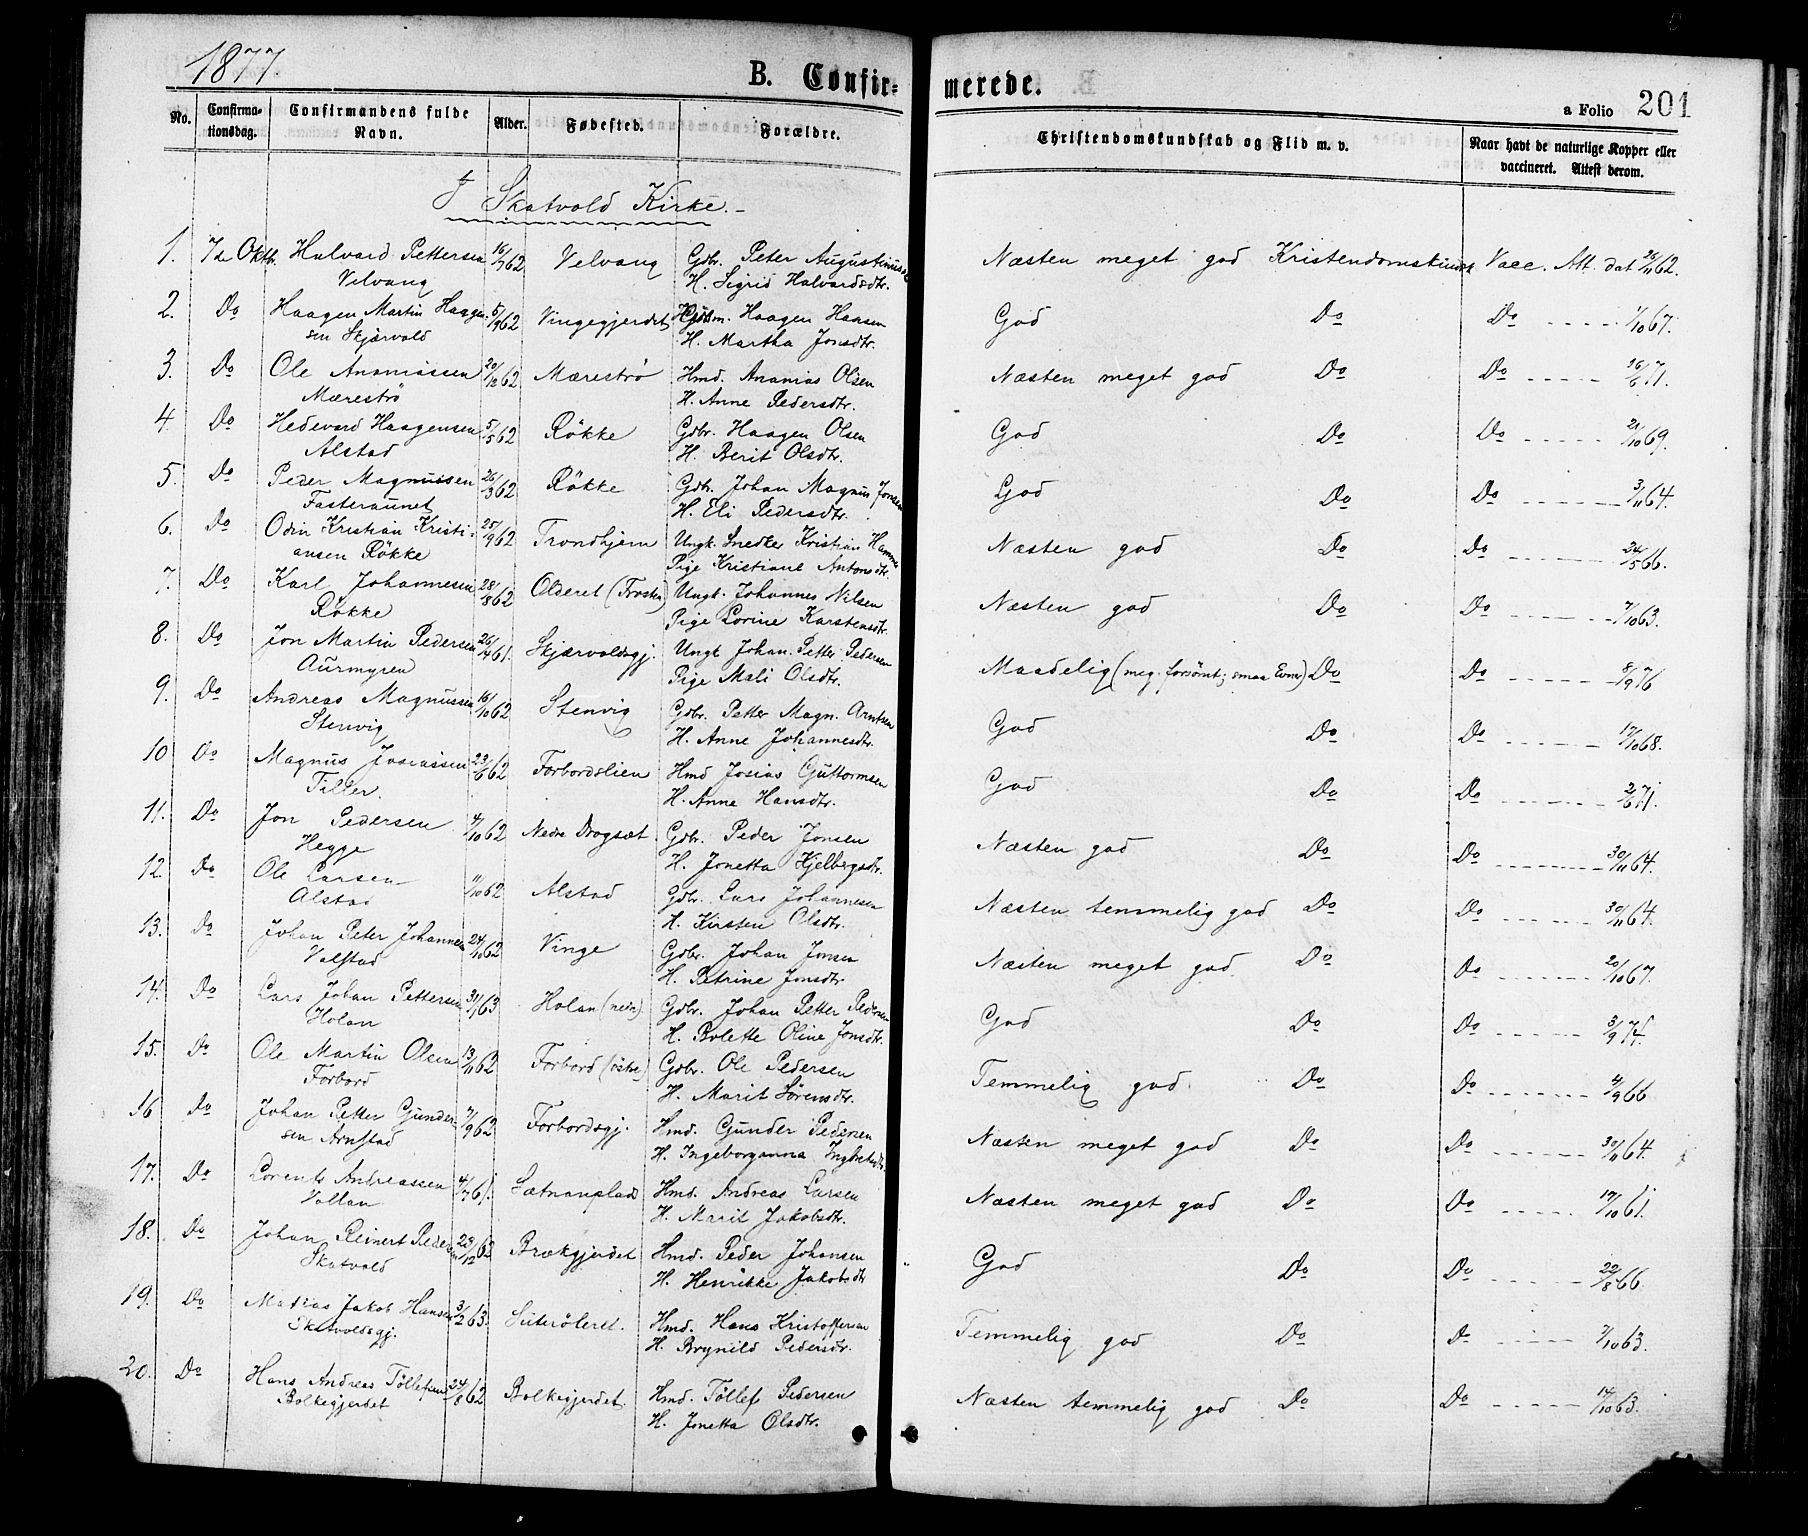 1877.
B. Confirmerede.
a Folio 201
No. Confirmationsdag. Confirmandens fulde Navn. Alder. Fødested. Forældre. Christendomskundskab og Flid m. v. Naar havt de naturlige Kopper eller vaccineret. Attest derom.
I Skatvold Kirke.-
1. 7de Oktb. Halvard Pettersen 16/7 62 Velvang Gbr. Peter Augustinussen Næsten meget god Kristendomskundsk Vacc. Att. dat 26/11 62.
Velvang H. Sigrid Halvardsdtr.
2. Do Haagen Martin Haagen- 5/9 62 Vingegjerdet Haagen Hansen God Do Do 1/10 67.
sen Skjærvold H. Martha Jonsdtr.
3. Do Ole Ananiassen 20/10 62 Mærestrø Hmd. Ananias Olsen Næsten meget god Do Do 16/6 71.
Mæreströ H. Anne Pedersdtr.
4. Do Hedevard Haagensen 5/5 62 Røkke Gbr. Haagen Olsen God Do Do 21/10 69.
Alstad H. Berit Olsdtr.
5. Do Peder Magnussen 26/3 62 Røkke Gbr. Johan Magnus Jonsen God Do Do 3/11 64.
Fasteraunet H. Eli Pedersdtr.
6. Do Odin Kristian Kristi- 25/9 62 Trondhjem Ungk. Snedker Kristian Hammer Næsten god Do Do 24/5 66.
ansen Røkke Pige Kristiane Antonsdtr.
7. Do Karl Johannesen 28/8 62 Olderet (Frosten) Ungk. Johannes Nilsen Næsten god Do Do 7/10 63.
Røkke Pige Lorine Karstensdtr.
8. Do Jon Martin Pedersen 26/4 61. Skjærvoldsgj. Ungk Johan Petter Pedersen Maadelig (meg. forsømt; smaa Evner) Do Do 8/9 76
Aurmyren Pige Mali Olsdtr.
9. Do Andreas Magnussen 16/10 62 Stenvig Gbr. Petter Magn. Arntsen God Do Do 17/10 68.
Stenvig H. Anne Johannesdtr.
10 Do Magnus Josiassen 23/6 62 Forbordslien Hmd Josias Guttormsen God Do Do 2/6 71.
Tiller. H. Anne Hansdtr.
11. Do Jon Pedersen 4/10 62 Nedre Drogsæt Gbr. Peder Jonsen Næsten god Do Do 30/11 64.
Hegge H. Jonetta Kjelbergsdtr.
12. Do Ole Larsen 11/10 62 Alstad Gbr. Lars Johannesen Næsten temmelig god Do Do 30/11 64.
Alstad H. Kirsten Olsdtr.
13. Do Johan Peter Johannes 24/10 62 Vinge Gbr. Johan Jonsen Næsten meget god Do Do 20/10 67.
Valstad H. Petrine Jonsdtr
14. Do Lars Johan Pettersen 31/1 63 Holan (nedr.) Gbr. Johan Petter Pedersen God Do Do 3/9 74.
Holan H. Bolette Oline Jonsdtr.
15. Do Ole Martin Olsen 13/11 62 Forbord (østre) Gbr. Ole Pedersen Temmelig god Do Do 4/9 66
Forbord H. Marit Sörensdtr.
16 Do Johan Petter Gunder- 7/9 62 Forbordsgj. Hmd. Gunder Pedersen Næsten meget god Do Do 30/11 64.
sen Arnstad H. Ingeboranna
17. Do Lorents Andreassen 4/7 61. Sætnanplads Hmd. Andreas Larsen Næsten meget god Do Do 19/10 61.
Vollan H. Marit Jakobsdtr.
18. Do Johan Reinert Pedersen 23/12 63 Brækgjerdet Hmd. Peder Johansen God Do Do 22/8 66.
Skatvold H. Henrikke Jakobsdtr
19. Do Matias Jakob Hansen 3/2 63. Suterøleret. Hmd. Hans Kristoffersen Temmelig god Do Do 7/10 63.
Skatvoldsgj. H. Brynild Pedersdtr.
20. Do Hans Andreas Töllefsen 24/8 62 Bolkegjerdet. Hmd. Töllef Pedersen Næsten temmelig god Do Do 14/10 63.
Bolkegjerdet H. Jonetta Olsdtr.